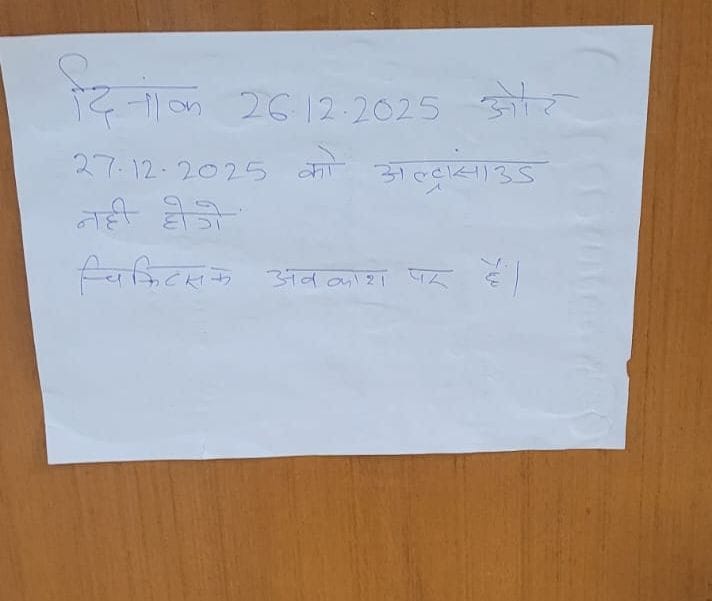 दिनांक 26.12.2025 और
27.12.2025 को अल्ट्रांसाउड
नही होगें
चिकित्सक अवकाश पर हैं।